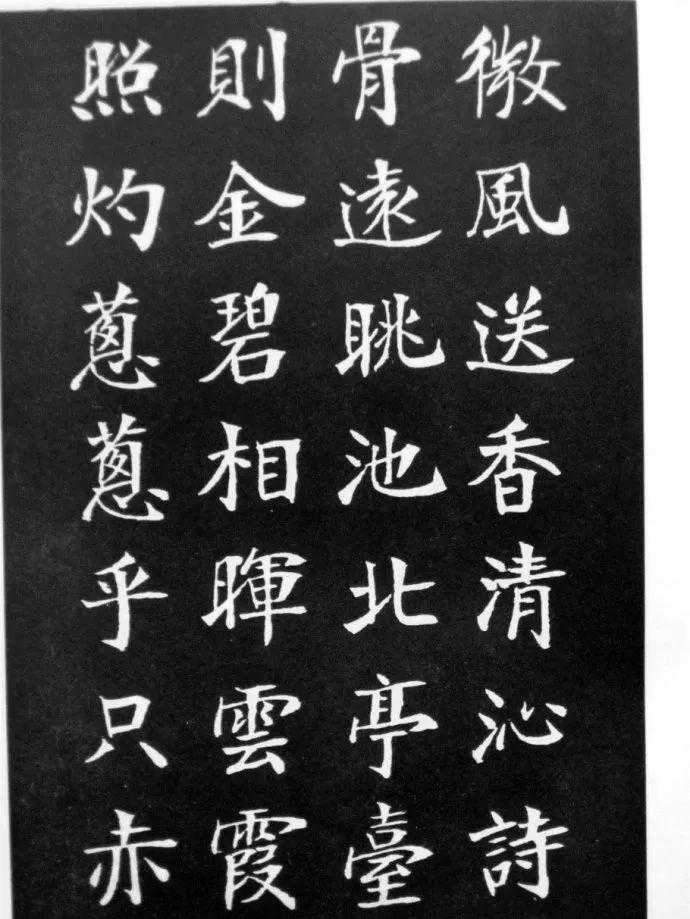 微風送香清沁詩
骨遠眺池北亭臺
則金碧相暉雲霞
照灼蔥蔥乎只赤